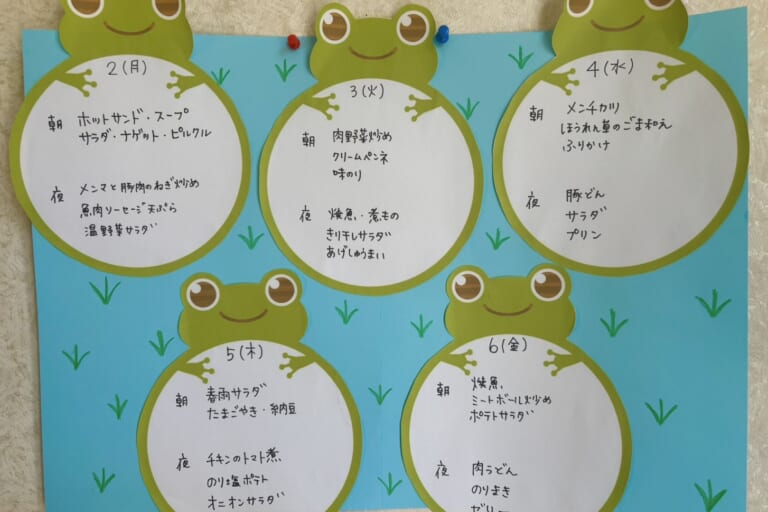 2(月)
朝 ホットサンド・スープ
サラダ・ナゲット・ピルクル
夜 メンマと豚肉のねぎ炒め
魚肉ソーセージ天ぷら
温野菜サラダ
3(火)
朝 肉野菜炒め
クリームペンネ
味のり
夜 焼魚・煮もの
きり干しサラダ
あげしゅうまい
4(水)
朝 メンチカツ
ほうれん草のごま和え
ふりかけ
夜 豚どん
サラダ
プリン
5(木)
朝 春雨サラダ
たまごやき・納豆
夜 チキンのトマト煮
のり塩ポテト
オニオンサラダ
6(金)
朝 焼魚
ミートボール炒め
ポテトサラダ
夜 肉うどん
のりまき
ゼリー